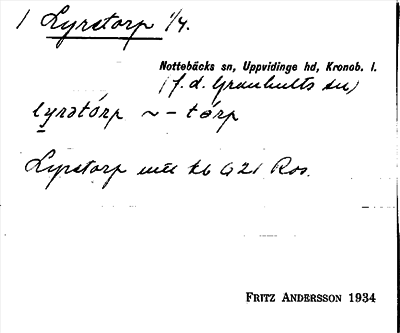 1 Lyrstorp 1/4.
Nottebäcks sn, Uppvidinge hd, Kronob. l.
(f.d. Granhults sn)
lyrstórp ~ - tórp
Lyrstorp utsl kb G 21 Ros.
FRITZ ANDERSSON 1934